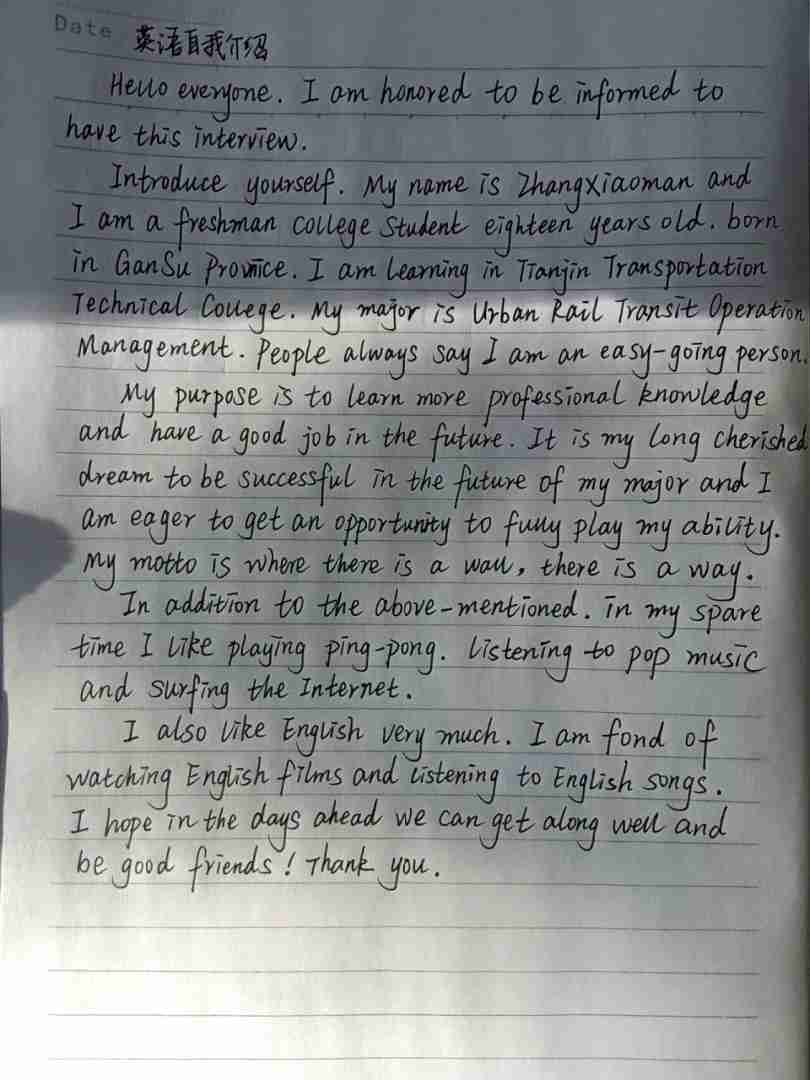 Date 英语自我介绍
Hello everyone. I am honored to be informed to
have this interview.
Introduce yourself. My name is ZhangXiaoman and
I am a freshman college student eighteen years old. born
in GanSu Provnice. I am learning in Tianjin Transportation
Technical College. My major is Urban Rail Transit Operation
Management. People always say I am an easy-going person.
My purpose is to learn more professional knowledge
and have a good job in the future. It is my long cherished
dream to be successful in the future of my major and I
am eager to get an opportunity to fully play my ability.
My motto is where there is a wall, there is a way.
In addition to the above-mentioned. in my spare
time I like playing ping-pong. listening to pop music
and surfing the Internet.
I also like English very much. I am fond of
watching English films and listening to English songs.
I hope in the days ahead we can get along well and
be good friends! Thank you.